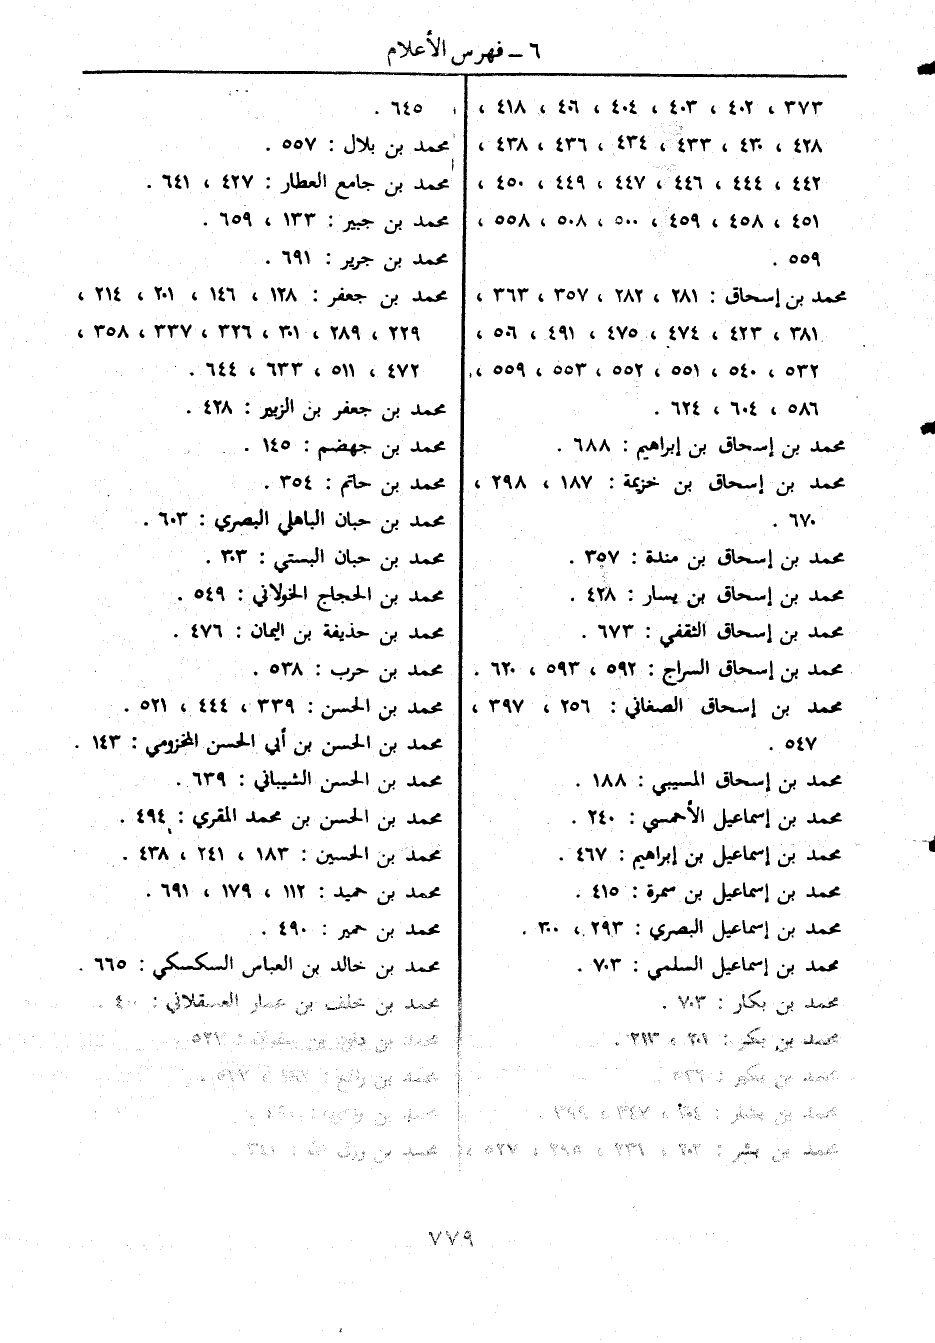 ٦ ــ فهرس الأعلام
٣٧٣ ، ٤٠٢ ، ٤٠٣ ، ٤٠٤ ، ٤٠٦ ، ٤١٨ ،
٤٢٨ ، ٤٣٠ ، ٤٣٣ ، ٤٣٤ ، ٤٣٦ ، ٤٣٨ ،
٤٤٢ ، ٤٤٤ ، ٤٤٦ ، ٤٤٧ ، ٤٤٩ ، ٤٥٠ ،
٤٥١ ، ٤٥٨ ، ٤٥٩ ، ٥٠٠ ، ٥٠٨ ، ٥٥٨ ،
٥٥٩ .
محمد بن إسحاق : ٢٨١ ، ٢٨٢ ، ٣٥٧ ، ٣٦٣ ،
٣٨١ ، ٤٢٣ ، ٤٧٤ ، ٤٧٥ ، ٤٩١ ، ٥٠٦ ،
٥٣٢ ، ٥٤٠ ، ٥٥١ ، ٥٥٢ ، ٥٥٣ ، ٥٥٩ ،
٥٨٦ ، ٦٠٤ ، ٦٢٤ .
محمد بن إسحاق بن إبراهيم : ٦٨٨ .
محمد بن إسحاق بن خزيمة : ١٨٧ ، ٢٩٨ ،
٦٧٠ .
محمد بن إسحاق بن مندة : ٣٥٧ .
محمد بن إسحاق بن يسار : ٤٢٨ .
محمد بن إسحاق الثقفي : ٦٧٣ .
محمد بن إسحاق السراج : ٥٩٢ ، ٥٩٣ ، ٦٢٠ .
محمد بن إسحاق الصغاني : ٢٥٦ ، ٣٩٧ ،
٥٤٧ .
محمد بن إسحاق المسيبي : ١٨٨ .
محمد بن إسماعيل الأحمسي : ٢٤٠ .
محمد بن إسماعيل بن إبراهيم : ٤٦٧ .
محمد بن إسماعيل بن سمرة : ٤١٥ .
محمد بن إسماعيل البصري : ٢٩٣ ، ٣٠٠ .
محمد بن إسماعيل السلمي : ٧٠٣ .
محمد بن بكار : ٧٠٣ .
محمد بن بكر : ٢٠١ ، ٢١٣ .
محمد بن بكير :
محمد بن بشار : ٢٠٤ ، ٣٤٧ ، ٣٩٩ .
محمد بن بشر : ٢٠٢ ، ٢٣٩ ، ٢٩٨ ، ٥٢٧ ،
٦٤٥ .
محمد بن بلال : ٥٥٧ .
محمد بن جامع العطار : ٤٢٧ ، ٦٤١ .
محمد بن جبير : ١٣٣ ، ٦٥٩ .
محمد بن جرير : ٦٩١ .
محمد بن جعفر : ١٢٨ ، ١٤٦ ، ٢٠١ ، ٢١٤ ،
٢٢٩ ، ٢٨٩ ، ٣٠١ ، ٣٢٦ ، ٣٣٧ ، ٣٥٨ ،
٤٧٢ ، ٥١١ ، ٦٣٣ ، ٦٤٤ .
محمد بن جعفر بن الزبير : ٤٢٨ .
محمد بن جهضم : ١٤٥ .
محمد بن حاتم : ٣٥٤ .
محمد بن حبان الباهلي البصري : ٦٠٣ .
محمد بن حبان البستي : ٣٠٣ .
محمد بن الحجاج الخولاني : ٥٤٩ .
محمد بن حذيفة بن اليمان : ٤٧٦ .
محمد بن حرب : ٥٣٨ .
محمد بن الحسن : ٣٣٩ ، ٤٤٤ ، ٥٢١ .
محمد بن الحسن بن أبي الحسن المخزومي : ١٤٣ .
محمد بن الحسن الشيباني : ٦٣٩ .
محمد بن الحسن بن محمد المقري : ٤٩٤ .
محمد بن الحسين : ١٨٣ ، ٢٤١ ، ٤٣٨ .
محمد بن حميد : ١١٢ ، ١٧٩ ، ٦٩١ .
محمد بن حمير : ٤٩٠ .
محمد بن خالد بن العباس السكسكي : ٦٦٥ .
محمد بن خلف بن عمار العسقلاني : ٤٠٠ .
محمد بن
محمد بن رافع :
محمد بن
محمد بن رزق الله :
٧٧٩